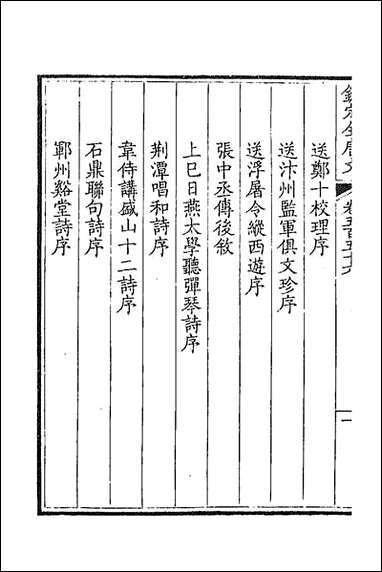 欽定全唐文 卷五百五十六 一
送鄭十校理序
送汴州監軍俱文珍序
送浮屠令縱西遊序
張中丞傳後敘
上巳日燕太學聽彈琴詩序
荆潭唱和詩序
韋侍講盛山十二詩序
石鼎聯句詩序
鄆州谿堂詩序